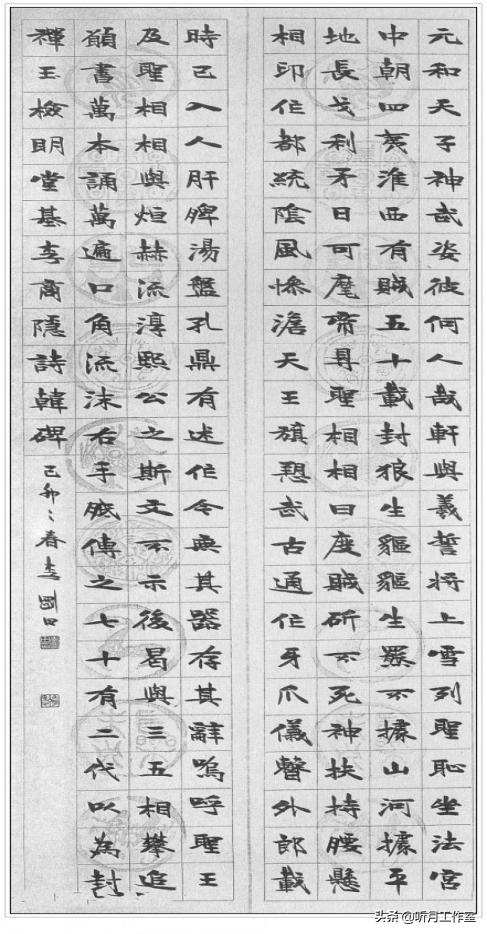 元和天子神武姿彼何人哉軒與羲誓將上雪列聖恥坐法宮
中朝四夷淮西有賊五十載封狼生貙貙生羆不據山河據平
地長戈利矛日可麾帝㝵聖相相曰度賊斫不死神扶持腰懸
相印作都統陰風慘澹天王旗愬武古通作牙爪儀曹外郎載
時已入人肝脾湯盤孔鼎有述作今無其器存其辭嗚呼聖王
及聖相相與烜赫流淳熙公之斯文不示後曷與三五相攀追
願書萬本誦萬遍口角流沫右手胝傳之七十有二代以為封
禪玉檢明堂基李商隱詩韓碑
己卯之春李剛田
头条@听月工作室